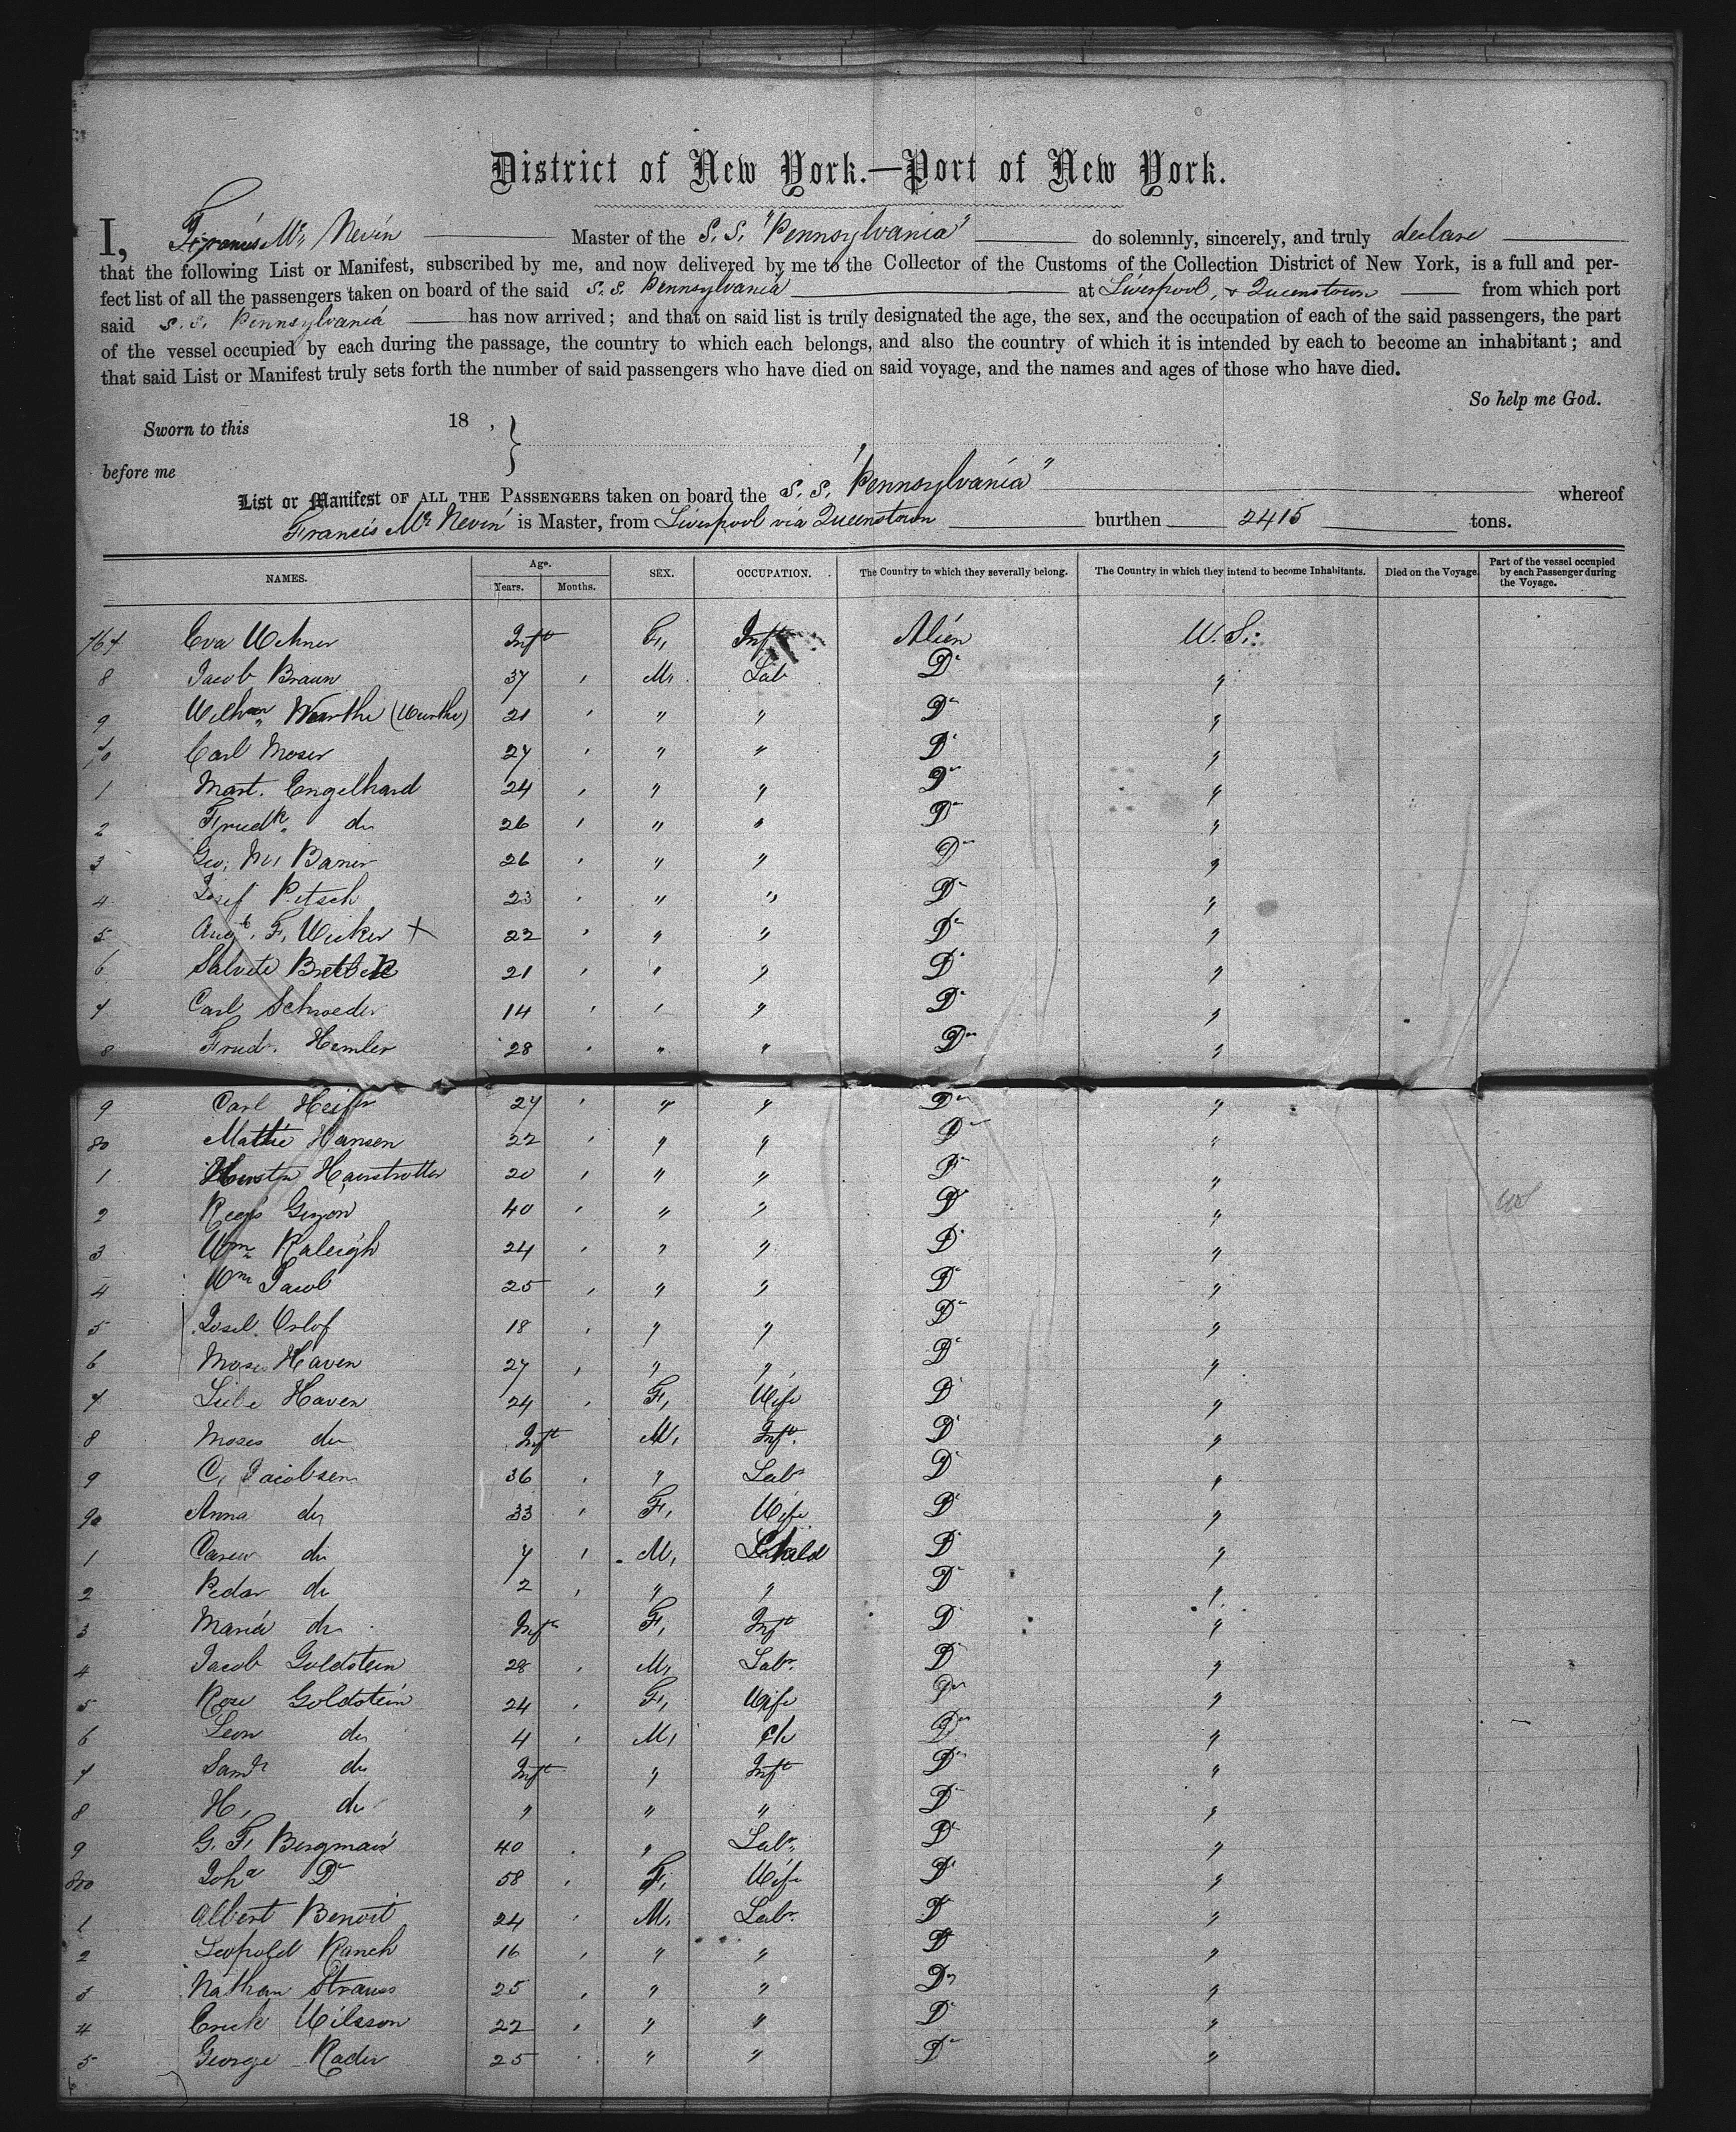 District of New York.—Port of New York.
I, Francis Mc Nevin Master of the S. S. "Pennsylvania" do solemnly, sincerely, and truly declare
that the following List or Manifest, subscribed by me, and now delivered by me to the Collector of the Customs of the Collection District of New York, is a full and per-
fect list of all the passengers taken on board of the said S. S. Pennsylvania at Liverpool, & Queenstown from which port
said S. S. Pennsylvania has now arrived; and that on said list is truly designated the age, the sex, and the occupation of each of the said passengers, the part
of the vessel occupied by each during the passage, the country to which each belongs, and also the country of which it is intended by each to become an inhabitant; and
that said List or Manifest truly sets forth the number of said passengers who have died on said voyage, and the names and ages of those who have died.
So help me God.
Sworn to this 18 ,
before me
List or Manifest OF ALL THE PASSENGERS taken on board the S. S. "Pennsylvania" whereof
Francis Mc Nevin is Master, from Liverpool via Queenstown burthen 2415 tons.
NAMES. Age. Years. Months. SEX. OCCUPATION. The Country to which they severally belong. The Country in which they intend to become Inhabitants. Died on the Voyage. Part of the vessel occupied by each Passenger during the Voyage.
767 Eva Inft F, Inft Alien U. S.
8 Jacob Braun 37 M, Lab Do "
9 21 " " Do "
70 Carl Moser 27 " " Do "
1 Mart. Engelhard 24 " " Do "
2 do 26 " " Do "
3 Geo. 26 " " Do "
4 Josef 23 " " Do "
5 Augt. F. X 22 " " Do "
6 21 " " Do "
7 Carl Schroeder 14 " " Do "
8 Hemler 28 " " Do "
9 Carl 27 " " Do "
80 Hansen 22 " " Do "
1 20 " " Do "
2 40 " " Do "
3 Wm Raleigh 24 " " Do "
4 Wm Jacob 25 " " Do "
5 Orlof 18 " " Do "
6 Moses Haven 27 " " Do "
7 Liebe Haven 24 F, Wife Do "
8 Moses do Inft M, Inft. Do "
9 C, Jacobsen 36 " Labr Do "
90 Anna do 33 F, Wife Do "
1 do 7 M, Child Do "
2 Pedar do 2 " " Do "
3 Maria do Inft F, Inft Do "
4 Jacob Goldstein 28 M, Labr. Do "
5 Rose Goldstein 24 F, Wife Do "
6 Leon do 4 M, Ch Do "
7 Saml do Inft " Inft Do "
8 H, do " " " Do "
9 G. F. Bergman 40 " Labr. Do "
800 Joha Do 58 F, Wife Do "
1 Albert Benoit 24 M, Labr. Do "
2 Leopold 16 " " Do "
3 Nathan Strauss 25 " " Do "
4 22 " " Do "
5 George Rader 25 " " Do "